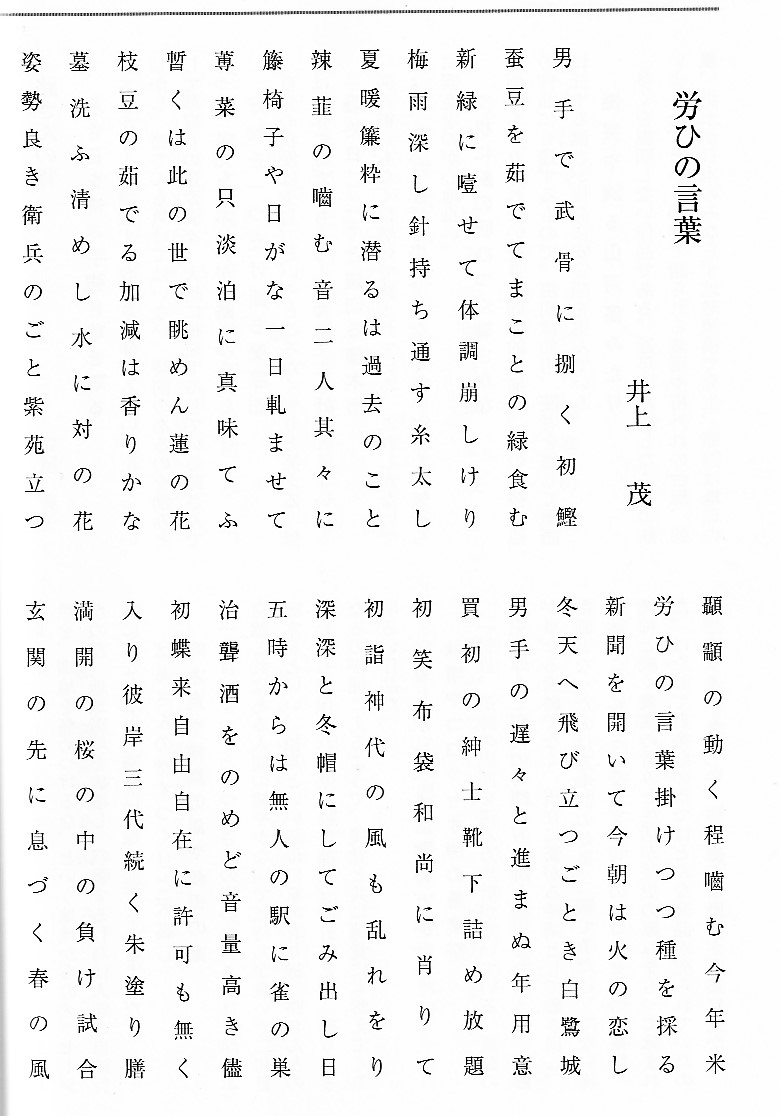 労ひの言葉
井上 茂
男手で武骨に捌く初鰹
蚕豆を茹でてまことの緑食む
新緑に噎せて体調崩しけり
梅雨深し針持ち通す糸太し
夏暖簾粋に潜るは過去のこと
辣韮の嚙む音二人其々に
籐椅子や日がな一日軋ませて
蓴菜の只淡泊に真味てふ
暫くは此の世で眺めん蓮の花
枝豆の茹でる加減は香りかな
墓洗ふ清めし水に対の花
姿勢良き衛兵のごと紫苑立つ
顳顬の動く程嚙む今年米
労ひの言葉掛けつつ種を採る
新聞を開いて今朝は火の恋し
冬天へ飛び立つごとき白鷺城
男手の遅々と進まぬ年用意
買初の紳士靴下詰め放題
初笑布袋和尚に肖りて
初詣神代の風も乱れをり
深深と冬帽にしてごみ出し日
五時からは無人の駅に雀の巣
治聾酒をのめど音量高き儘
初蝶来自由自在に許可も無く
入り彼岸三代続く朱塗り膳
満開の桜の中の負け試合
玄関の先に息づく春の風